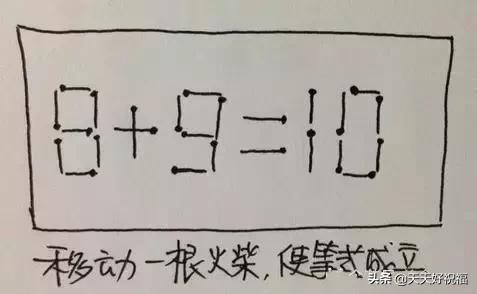 8+9=10
移动一根火柴，使等式成立
头条@天天好祝福